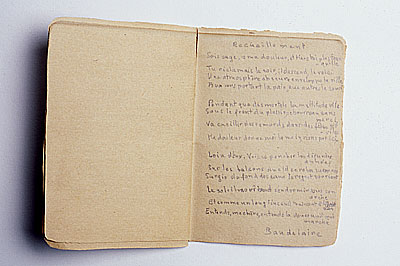 Recueillement
Sois sage, ô ma douleur, et tiens toi plus
Tu réclamais le soir, il descend, le voici
Une atmosphère obscure enveloppe la ville
Aux uns portant la paix, aux autres le souci
Pendant que des mortels la multitude vile
Sous le fouet du plaisir, ce bourreau sans
merci
Va cueillir des remords dans
Ma douleur donne moi la main, viens par ici
Loin d'eux. Vois se pencher les défuntes
années
Sur les balcons du ciel
Surgir du fond des eaux le regret souriant
Le soleil
arche
Et comme un long linceul traînant
Entends, ma chère, entends la douce nuit qui
marche
Baudelaire